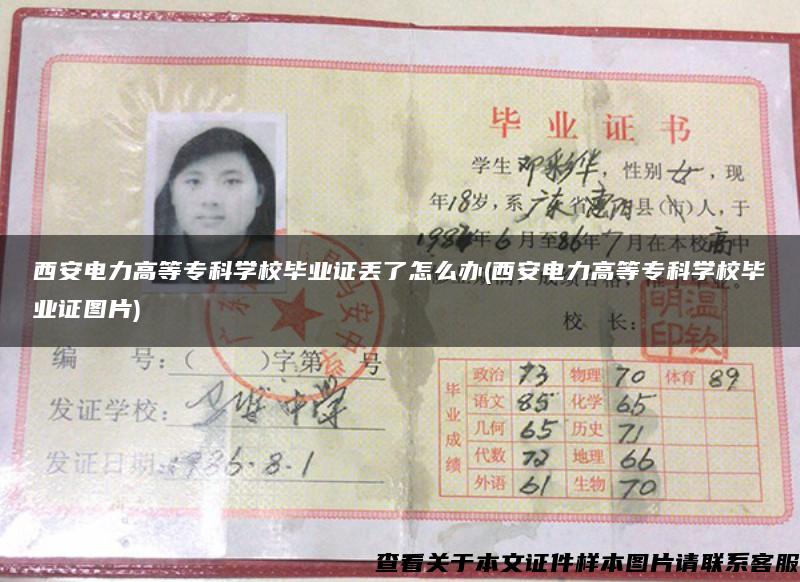 毕业证书
学生邓彩华，性别女，现
年18岁，系广东省惠阳县(市)人，于
年6月至86年7月在本校高中
西安电力高等专科学校毕业证丢了怎么办(西安电力高等专科学校毕
业证图片)
校 长：
编 号：( )字第 号
发证学校：
发证日期：1986.8.1
毕业成绩
政治 73 物理 70 体育 89
语文 85 化学 65
几何 65 历史 71
代数 72 地理 66
外语 61 生物 70
查看关于本文证件样本图片请联系客服